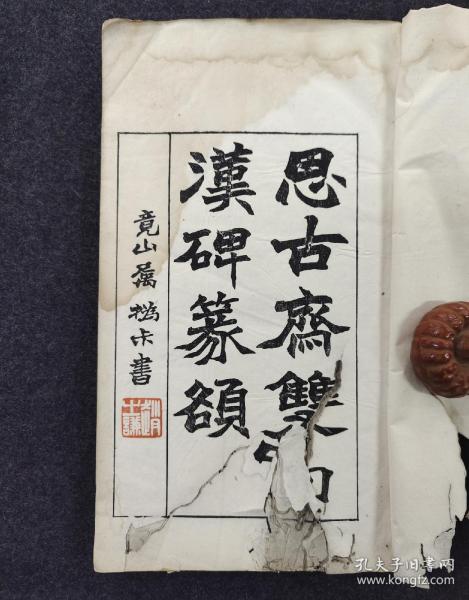 思古齋雙
漢碑篆額
竟山屬撝尗書
趙之謙
孔夫子旧书网
www.kongfz.com